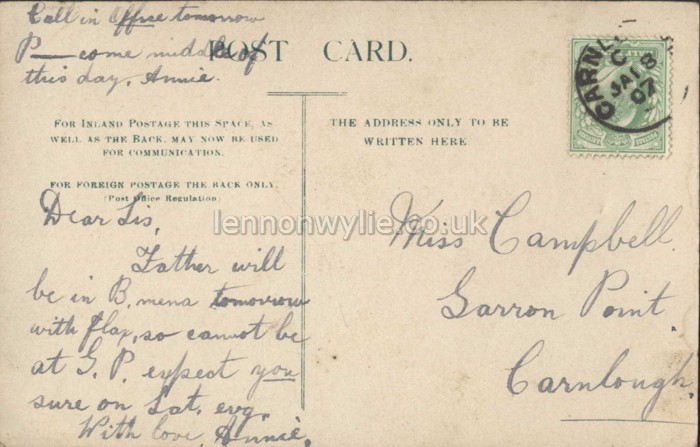 Call in Office tomorrow
P— come middle of
this day, Annie.
POST CARD.
FOR INLAND POSTAGE THIS SPACE, AS
WELL AS THE BACK, MAY NOW BE USED
FOR COMMUNICATION.
FOR FOREIGN POSTAGE THE BACK ONLY.
(Post Office Regulation)
THE ADDRESS ONLY TO BE
WRITTEN HERE
CARNL
C
JA 18
07
Dear Sis,
Father will
be in B. mena tomorrow
with flax, so cannot be
at G. P. expect you
sure on Sat. evg.
With love, Annie.
Miss Campbell.
Garron Point.
Carnlough.
lennonwylie.co.uk